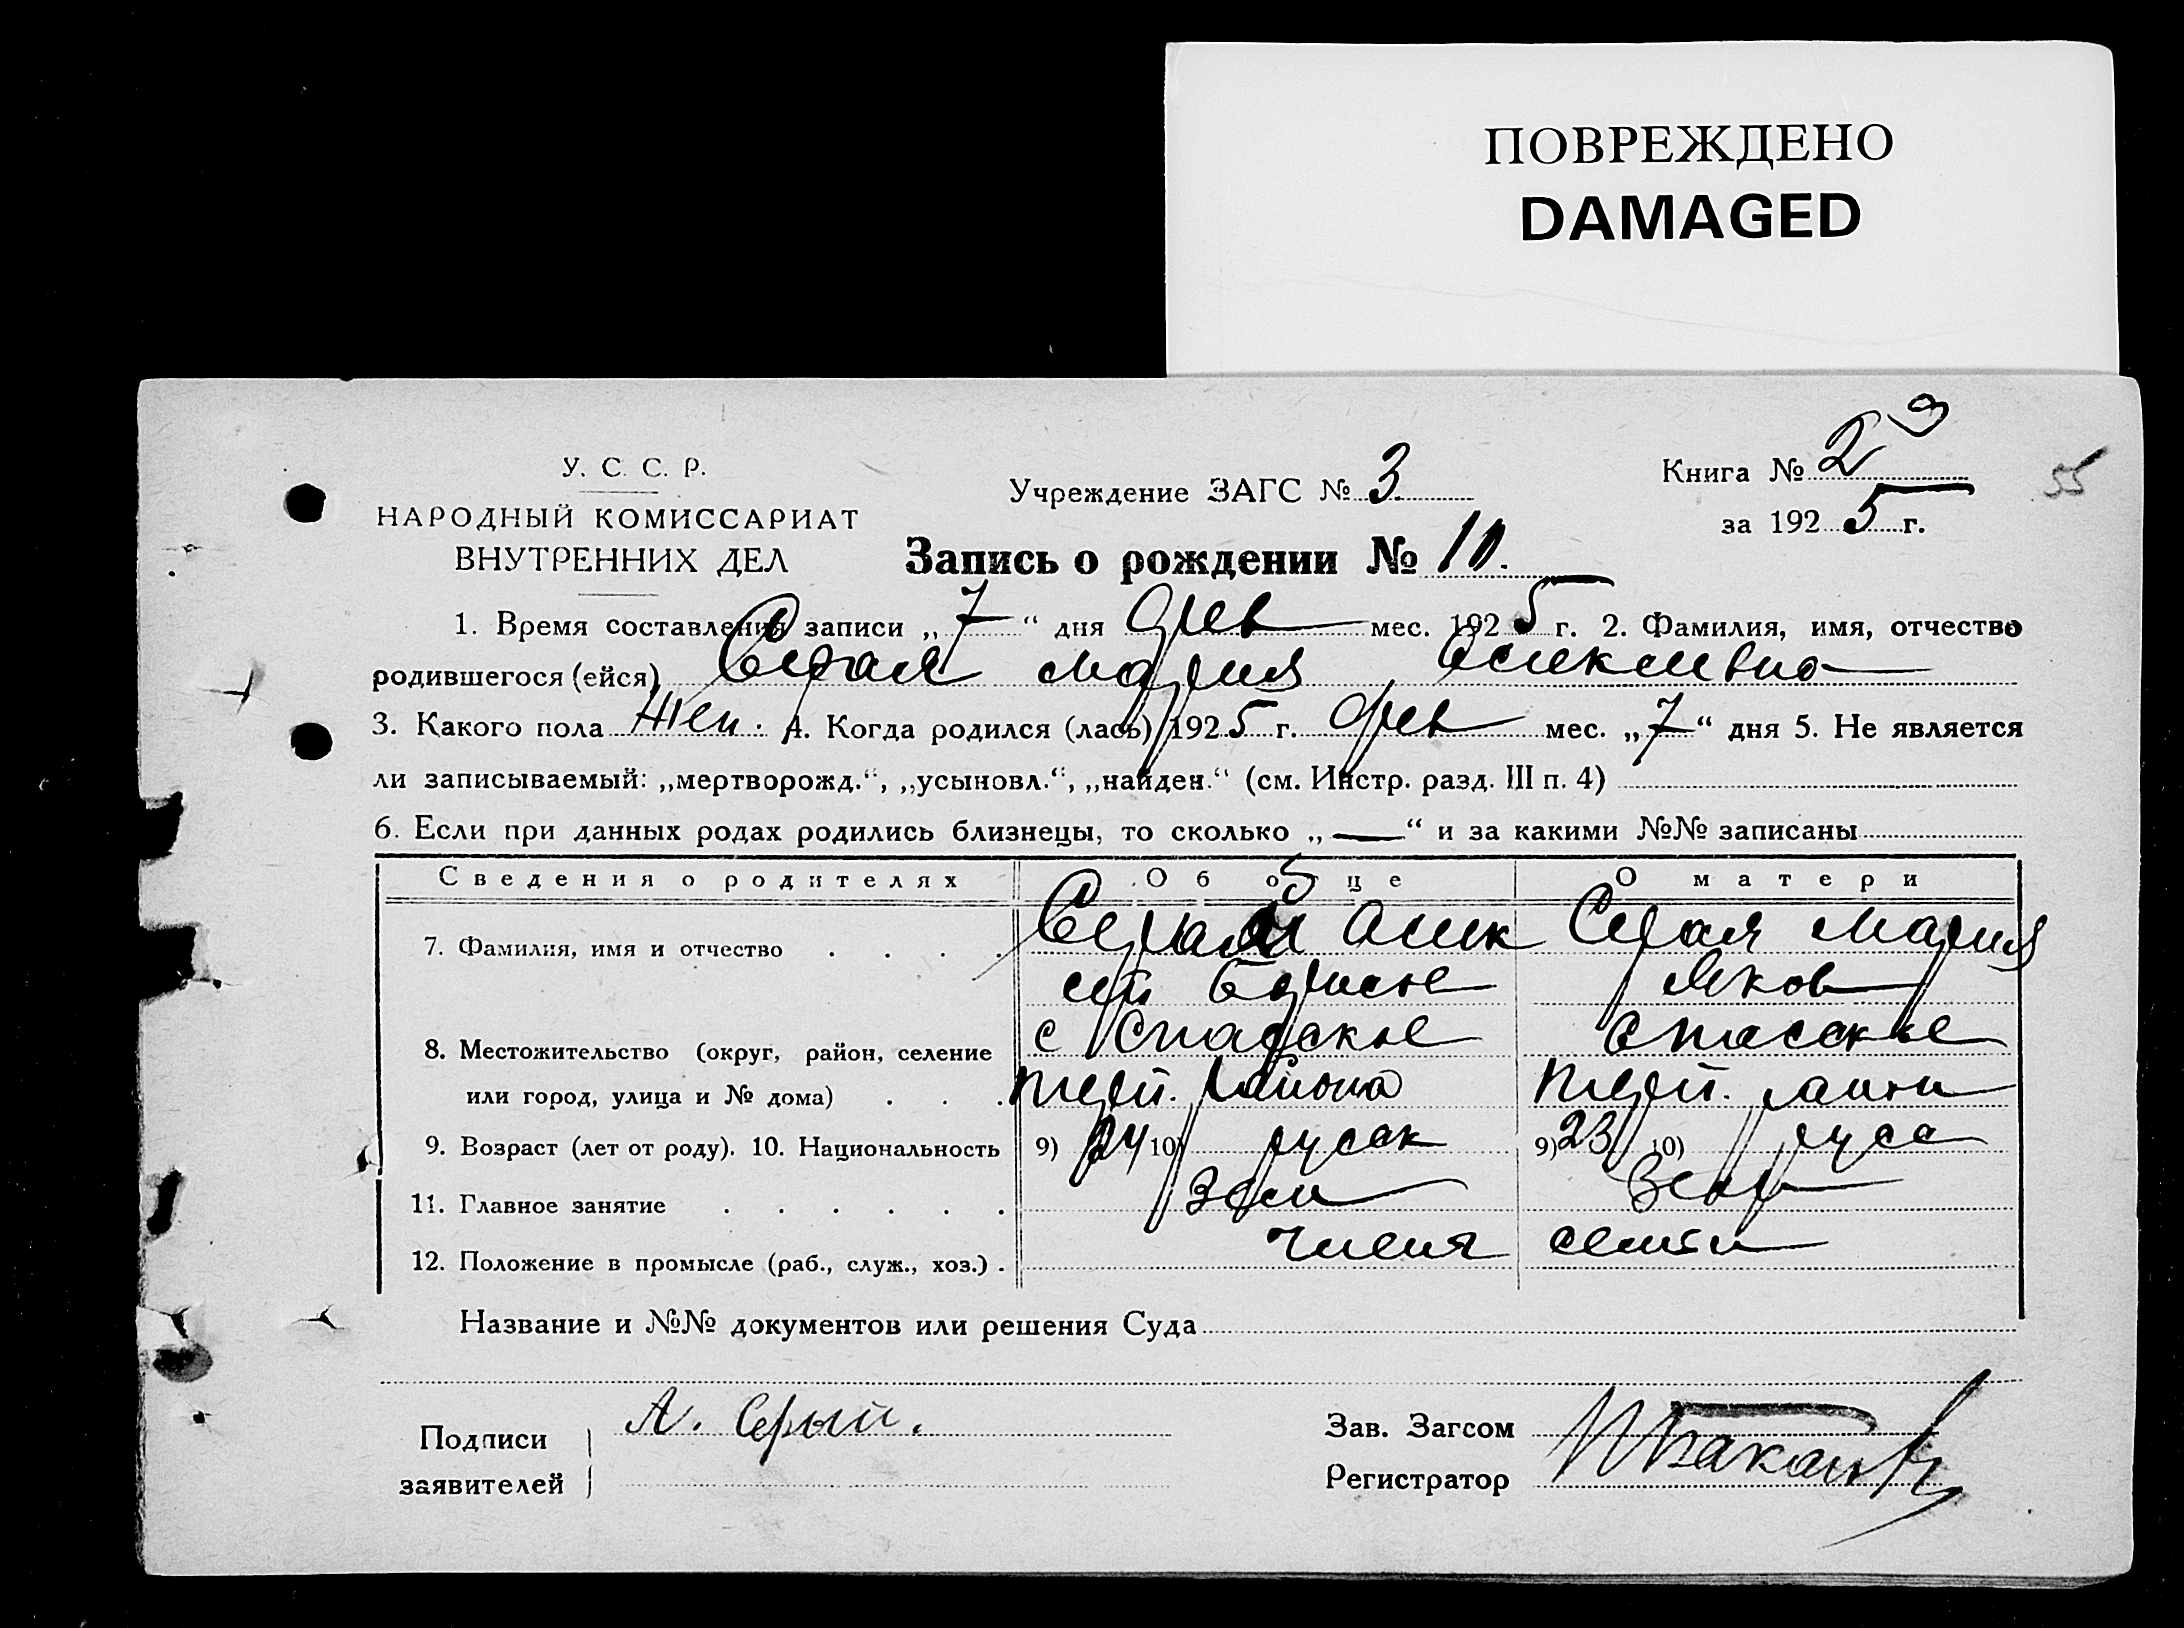 ПОВРЕЖДЕНО
DAMAGED
У. С. С. Р.
НАРОДНЫЙ КОМИССАРИАТ
ВНУТРЕННИХ ДЕЛ
Учреждение ЗАГС № 3
Книга № 2
за 1925 г.
55
Запись о рождении № 10.
1. Время составления записи „7“ дня фев мес. 1925 г. 2. Фамилия, имя, отчество
родившегося (ейся) Серая Мария Алексеевна
3. Какого пола жен. 4. Когда родился (лась) 1925 г. фев мес. „7“ дня 5. Не является
ли записываемый: „мертворожд.“, „усыновл.“, „найден.“ (см. Инстр. разд. III п. 4)
6. Если при данных родах родились близнецы, то сколько „—“ и за какими №№ записаны
Сведения о родителях Об отце О матери
7. Фамилия, имя и отчество . . . . Серый Алек Серая Мария
сей Борисов Яков
8. Местожительство (округ, район, селение с Спасское Спасское
или город, улица и № дома) . . . терп. района терп. район
9. Возраст (лет от роду). 10. Национальность 9) 24 10) русск 9) 23 10) русс
11. Главное занятие . . . . . . Зем
12. Положение в промысле (раб., служ., хоз.) . члены семьи
Название и №№ документов или решения Суда
Подписи
заявителей
А. Серый.
Зав. Загсом
Регистратор